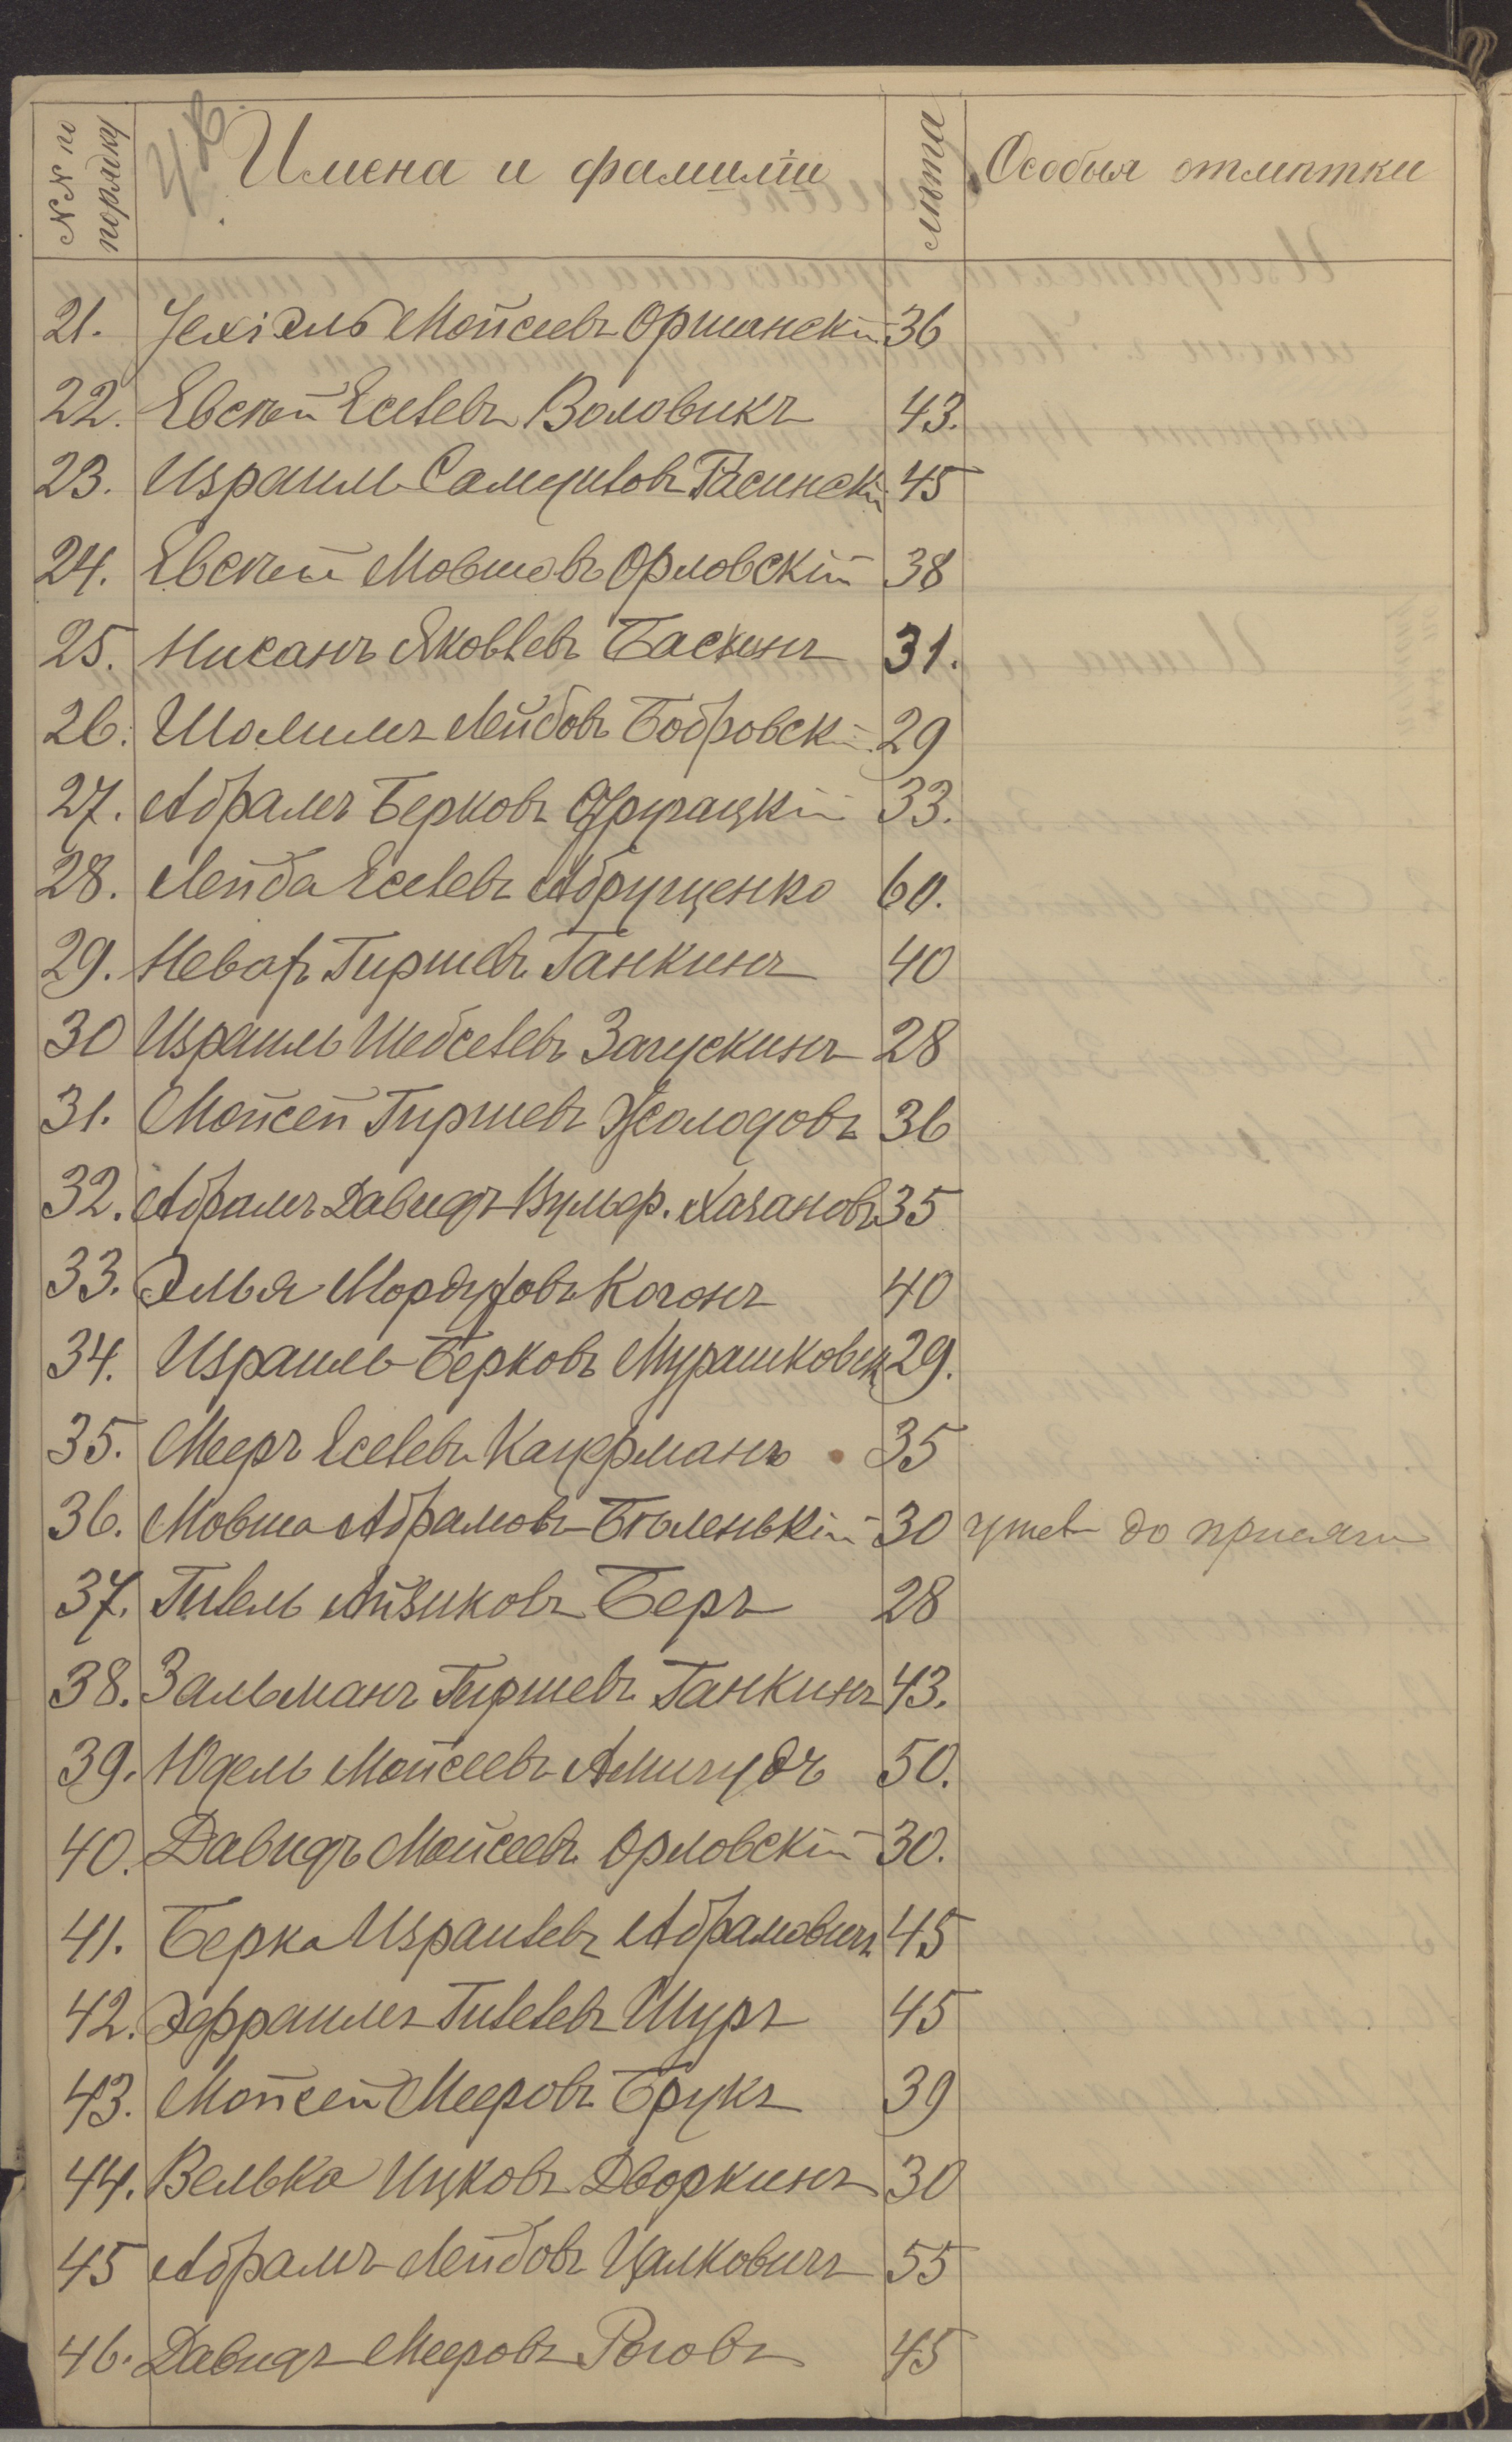 №№ по порядку Имена и фамиліи лѣта Особыя отмѣтки
21. Іехіэль Мойсеевъ Оршанскій 36
22. Евсей Еселевъ Воловикъ 43.
23. Израиль Самуиловъ 45
24. Евсей Мовшовъ Орловскій 38
25. Нисанъ Яковлевъ Баскинъ 31.
26. Шолимъ Лейбовъ Бобровскій 29
27. Абрамъ Берковъ 33.
28. Лейба Еселевъ Абрущенко 60.
29. Невахъ Гиршевъ Ганкинъ 40
30 Израиль Шебселевъ Загускинъ 28
31. Мойсей Гиршевъ Холодовъ 36
32. Абрамъ Давидъ Вульф. Хазановъ 35
33. Элья Мордуховъ Когонъ 40
34. Израиль Берковъ Мурашковск 29.
35. Мееръ Еселевъ Кацерманъ 35
36. Мовша Абрамовъ Бѣленькій 30 до присяги
37. Гилель Айзиковъ Беръ 28
38. Зальманъ Гиршевъ Ганкинъ 43.
39. Юдель Мойсеевъ Амигудъ 50.
40. Давидъ Мойсеевъ Орловскій 30.
41. Берка Израилевъ Абрамовичъ 45
42. Эфраимъ Гилелевъ Шуръ 45
43. Мойсей Мееровъ Брукъ 39
44. Велька Ицковъ Дворкинъ 30
45 Абрамъ Лейбовъ Цалковичъ 55
46. Давидъ Мееровъ Роговъ 45